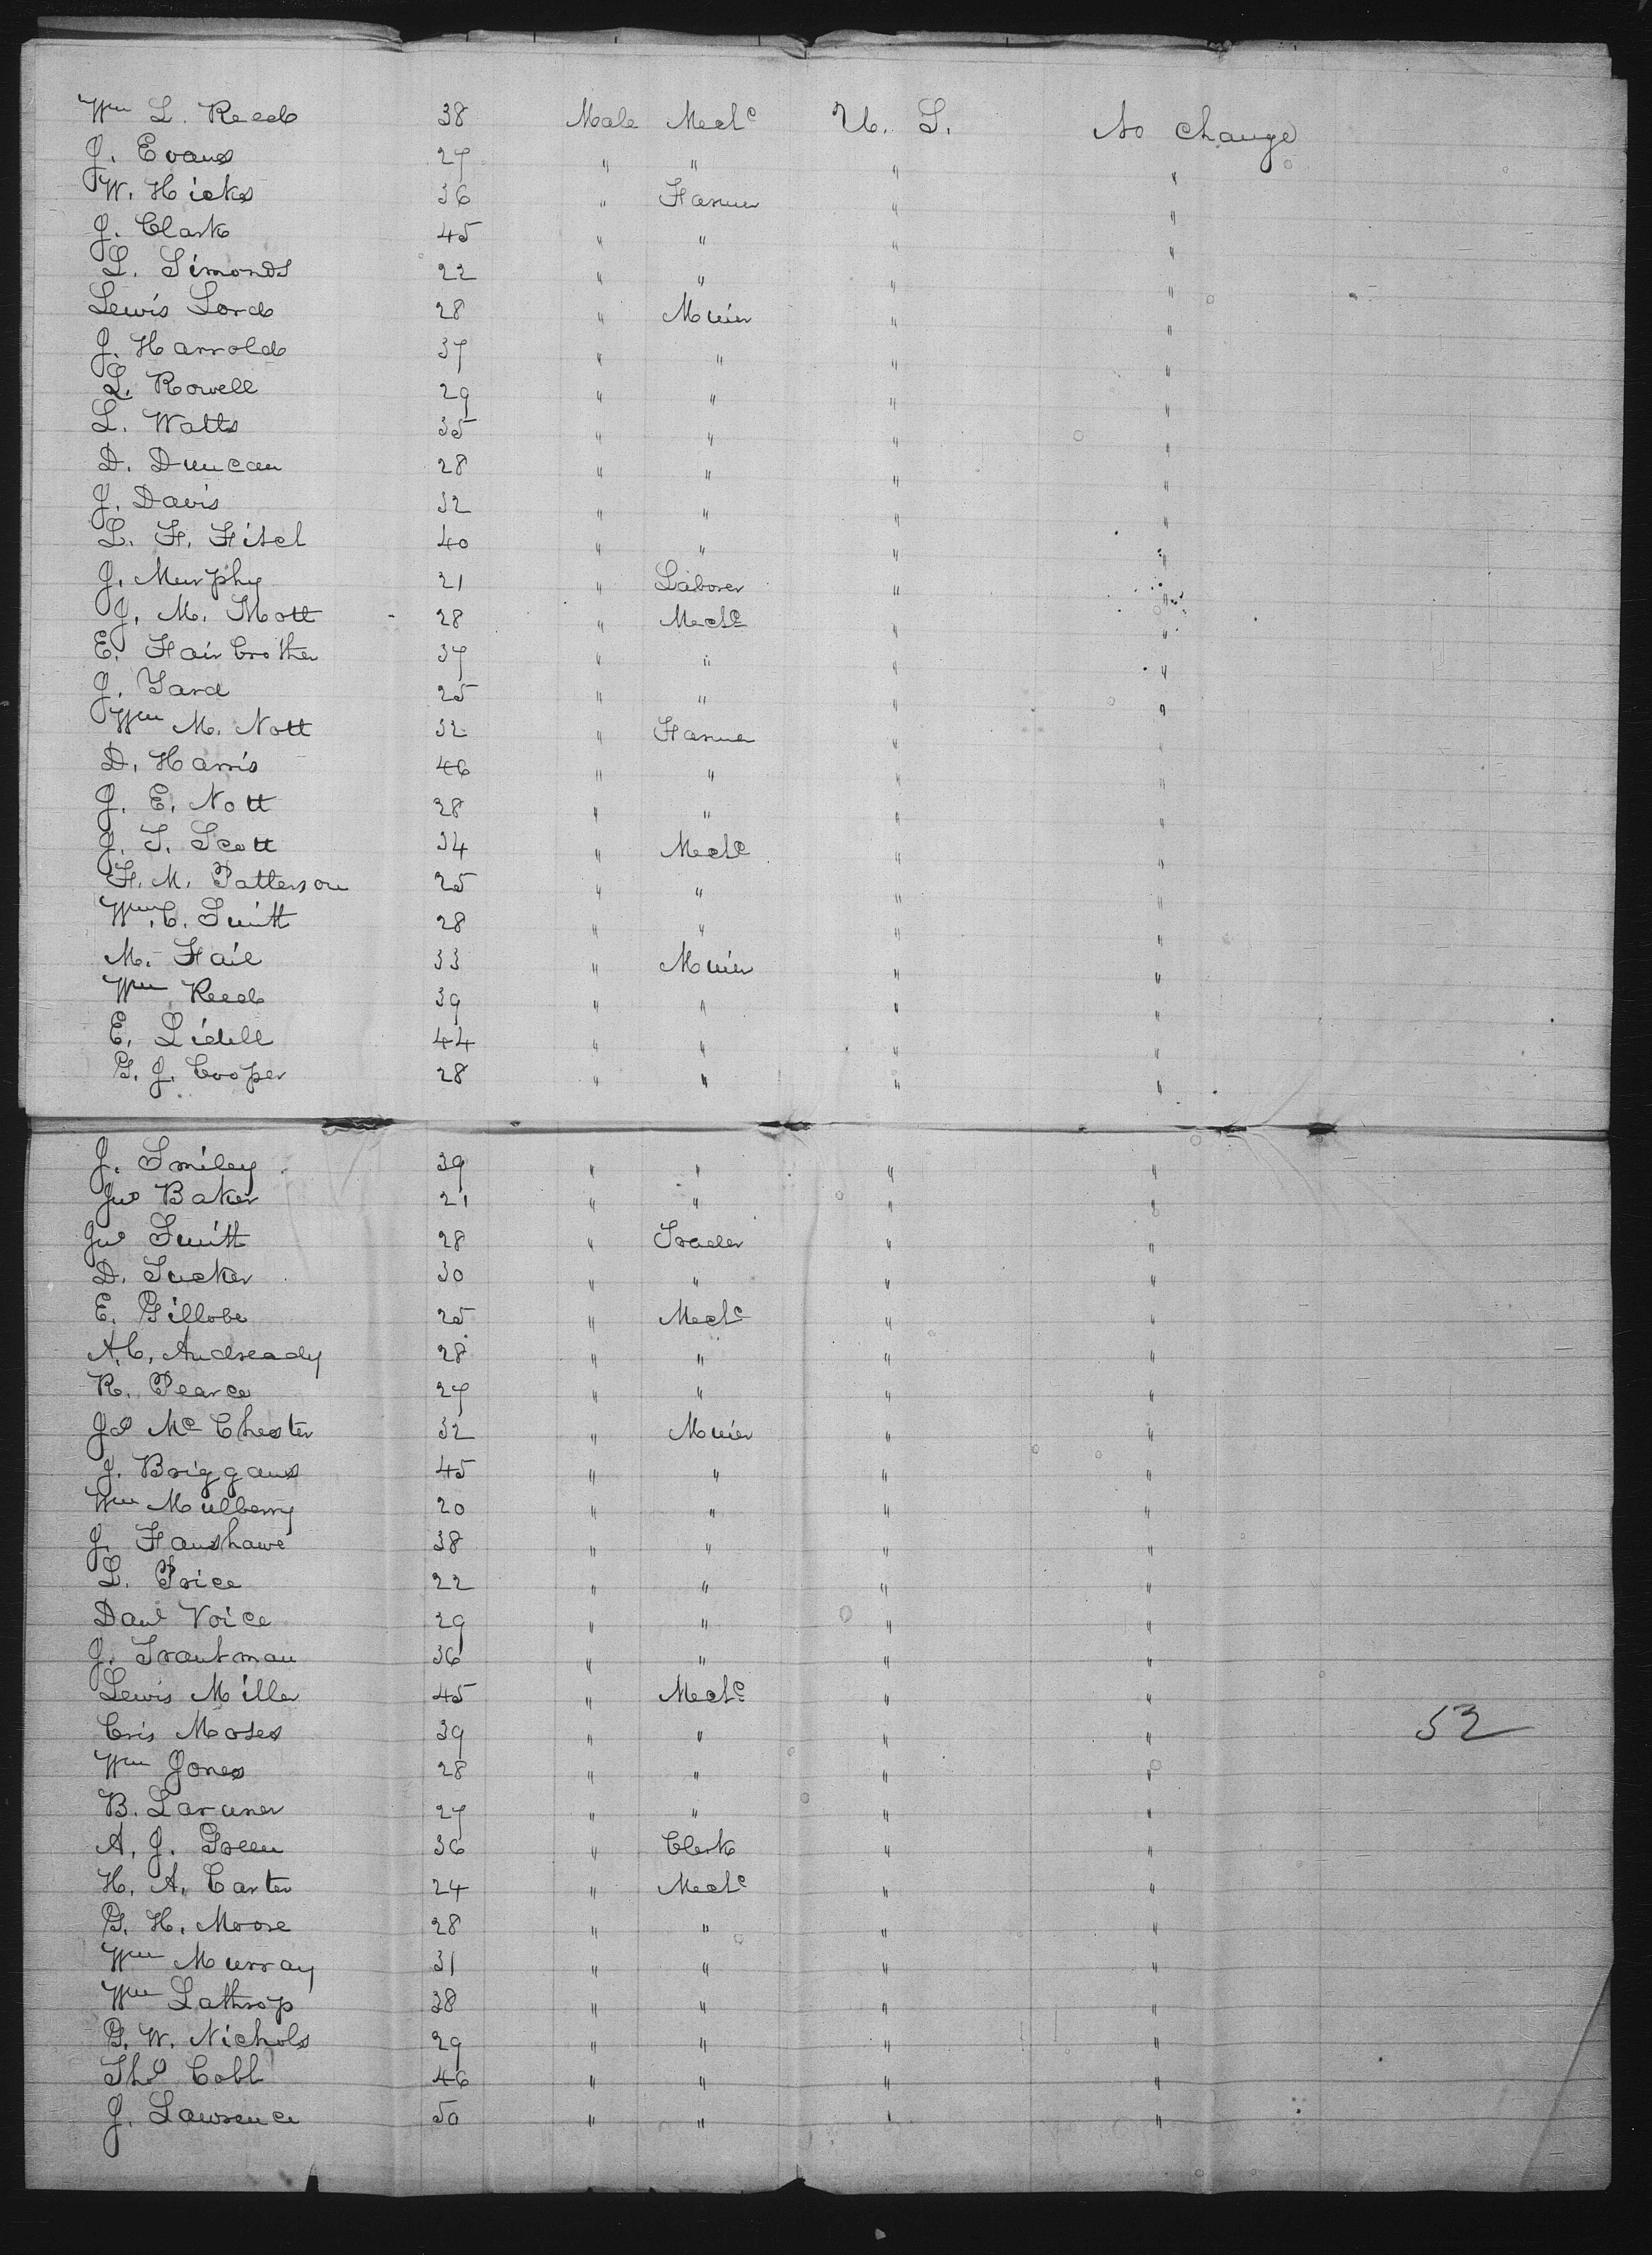 Wm L. Reed 38 Male Mechc U. S. No change
J. Evans 27 " " " "
W. Hicks 36 " Farmer " "
J. Clark 45 " " " "
L. Simonds 22 " " " "
Lewis Lord 28 " Miner " "
J. Harrold 37 " " " "
L. Rowell 29 " " " "
L. Watts 35 " " " "
D. Duncan 28 " " " "
J. Davis 32 " " " "
L. F. Fitch 40 " " " "
J. Murphy 21 " Laborer " "
J. M. Mott 28 " Mechc " "
E. Fairbrother 37 " " " "
J. Yard 25 " " " "
Wm M. Nott 32 " Farmer " "
D. Harris 46 " " " "
J. E. Nott 28 " " " "
J. T. Scott 34 " Mechc " "
F. M. Patterson 25 " " " "
Wm C. Smith 28 " " " "
M. Fail 33 " Miner " "
Wm Reed 39 " " " "
E. Lidell 44 " " " "
G. J. Cooper 28 " " " "
J. Smiley 39 " " " "
Jno Baker 21 " " " "
Jno Smith 28 " Trader " "
D. Tucker 30 " " " "
E. Gillobe 25 " Mechc " "
A. C. Andready 28 " " " "
R. Pearce 27 " " " "
Jas McChester 32 " Miner " "
J. Briggans 45 " " " "
Wm Mulberry 20 " " " "
J. Fanshawe 38 " " " "
L. Price 22 " " " "
Danl Voice 29 " " " "
J. Trautman 36 " " " "
Lewis Miller 45 " Mechc " "
Cris Moses 39 " " " " 52
Wm Jones 28 " " " "
B. Laruner 27 " " " "
A. J. Green 36 " Clerk " "
H. A. Carter 24 " Mechc " "
G. H. Moore 28 " " " "
Wm Murray 31 " " " "
Wm Lathrop 38 " " " "
G. W. Nichols 29 " " " "
Thos Cobb 46 " " " "
J. Lawrence 50 " " " "